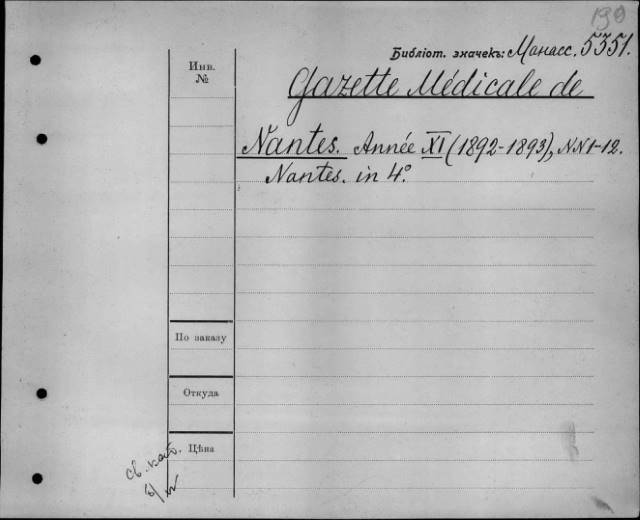 190
Библіот. значекъ: Манасс. 5351.
Инв.
№
Gazette Médicale de
Nantes. Année XI (1892-1893), NN 1-12.
Nantes. in 4.°
По заказу
Откуда
Цѣна
св. кат.